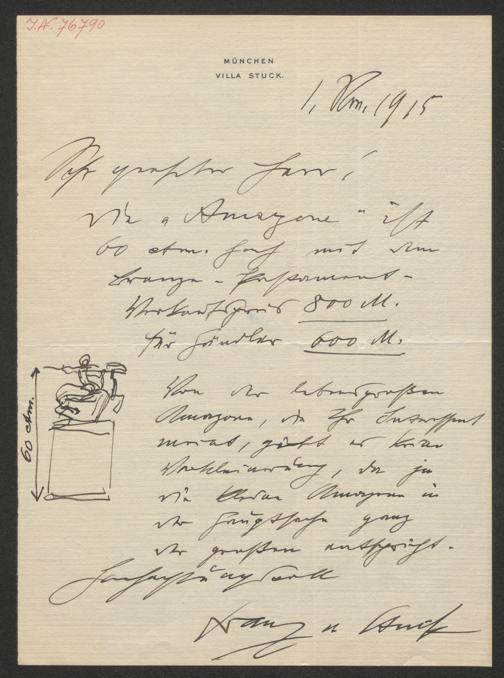 J.N. 76790
MÜNCHEN
VILLA STUCK.
1. Nov. 1915
Sehr geehrter Herr!
die „Amazone" ist
60 ctm. hoch mit dem
Bronze-Postament-
Verkaufspreis 800 M.
für Händler 600 M.
60 ctm.
Von der lebensgroßen
Amazone, die Ihr Interessent
meint, gibt es keine
Verkleinerung, da ja
die kleine Amazone in
der Hauptsache ganz
der großen entspricht.
Hochachtungsvoll
Franz v Stuck